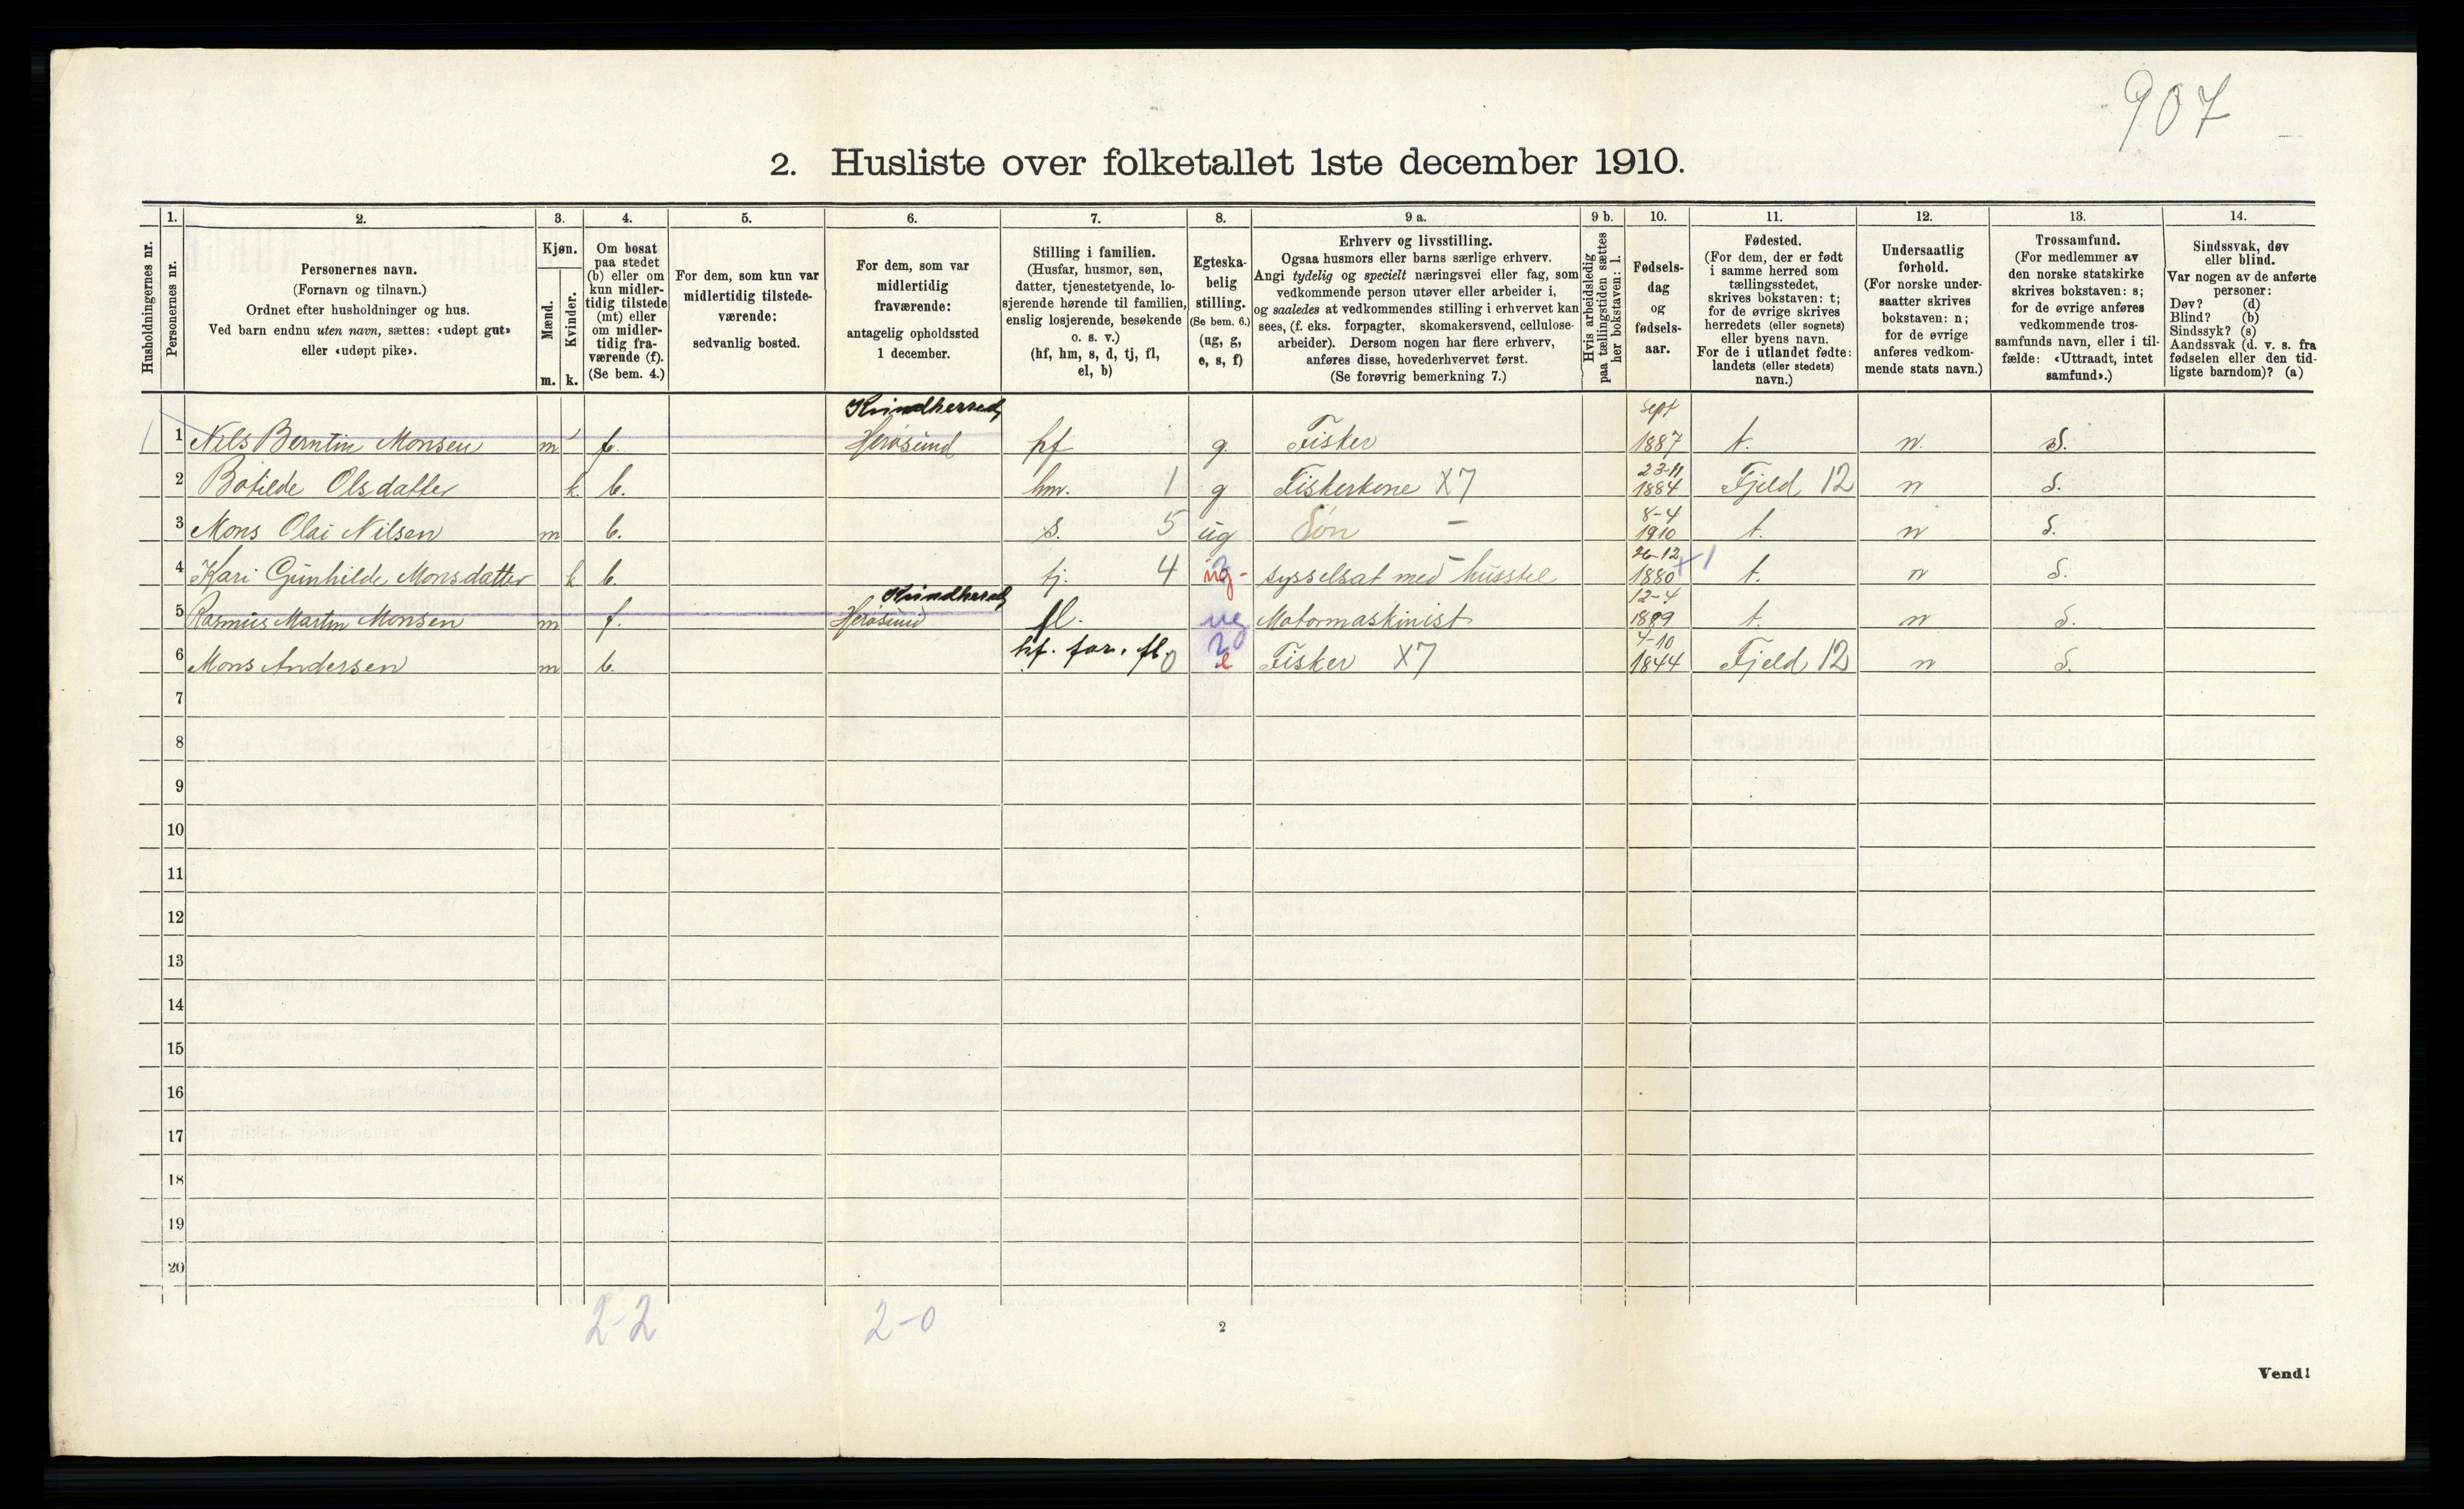 907
2. Husliste over folketallet 1ste december 1910.
Husholdningernes nr.
1. Personernes nr.
2. Personernes navn. (Fornavn og tilnavn.) Ordnet efter husholdninger og hus. Ved barn endnu uten navn, sættes: «udøpt gut» eller «udøpt pike».
3. Kjøn. Mænd. m. Kvinder. k.
4. Om bosat paa stedet (b) eller om kun midlertidig tilstede (mt) eller om midlertidig fraværende (f). (Se bem. 4.)
5. For dem, som kun var midlertidig tilstedeværende: sedvanlig bosted.
6. For dem, som var midlertidig fraværende: antagelig opholdssted 1 december.
7. Stilling i familien. (Husfar, husmor, søn, datter, tjenestetyende, losjerende hørende til familien, enslig losjerende, besøkende o. s. v.) (hf, hm, s, d, tj, fl, el, b)
8. Egteskabelig stilling. (Se bem. 6.) (ug, g, e, s, f)
9 a. Erhverv og livsstilling. Ogsaa husmors eller barns særlige erhverv. Angi tydelig og specielt næringsvei eller fag, som vedkommende person utøver eller arbeider i, og saaledes at vedkommendes stilling i erhvervet kan sees, (f. eks. forpagter, skomakersvend, cellulosearbeider). Dersom nogen har flere erhverv, anføres disse, hovederhvervet først. (Se forøvrig bemerkning 7.)
9 b. Hvis arbeidsledig paa tællingstiden sættes her bokstaven: l.
10. Fødselsdag og fødselsaar.
11. Fødested. (For dem, der er født i samme herred som tællingsstedet, skrives bokstaven: t; for de øvrige skrives herredets (eller sognets) eller byens navn. For de i utlandet fødte: landets (eller stedets) navn.)
12. Undersaatlig forhold. (For norske undersaatter skrives bokstaven: n; for de øvrige anføres vedkommende stats navn.)
13. Trossamfund. (For medlemmer av den norske statskirke skrives bokstaven: s; for de øvrige anføres vedkommende trossamfunds navn, eller i tilfælde: «Uttraadt, intet samfund».)
14. Sindssvak, døv eller blind. Var nogen av de anførte personer: Døv? (d) Blind? (b) Sindssyk? (s) Aandssvak (d. v. s. fra fødselen eller den tidligste barndom)? (a)
1 Nils Berntin Monsen m f. Kvindherred Herøsund hf g. Fisker sept 1887 t. n. S.
2 Botilde Olsdatter k. b. hm. 1 g Fiskerkone X7 23-11 1884 Fjeld 12 n S.
3 Mons Olai Nilsen m b. s. 5 ug Søn - 8-4 1910 t. n S.
4 Kari Gunhilde Monsdatter k b. tj. 4 ug - sysselsat med husstel 26-12 1880 +1 t. n S.
5 Rasmus Martin Monsen m f. Kvindherred Herøsund fl. ug Motormaskinist 12-4 1889 t. n S.
6 Mons Andersen m b. hf. far. fl. 0 e Fisker X7 4-10 1844 Fjeld 12 n S.
7
8
9
10
11
12
13
14
15
16
17
18
19
20
2-2 2-0
2
Vend!